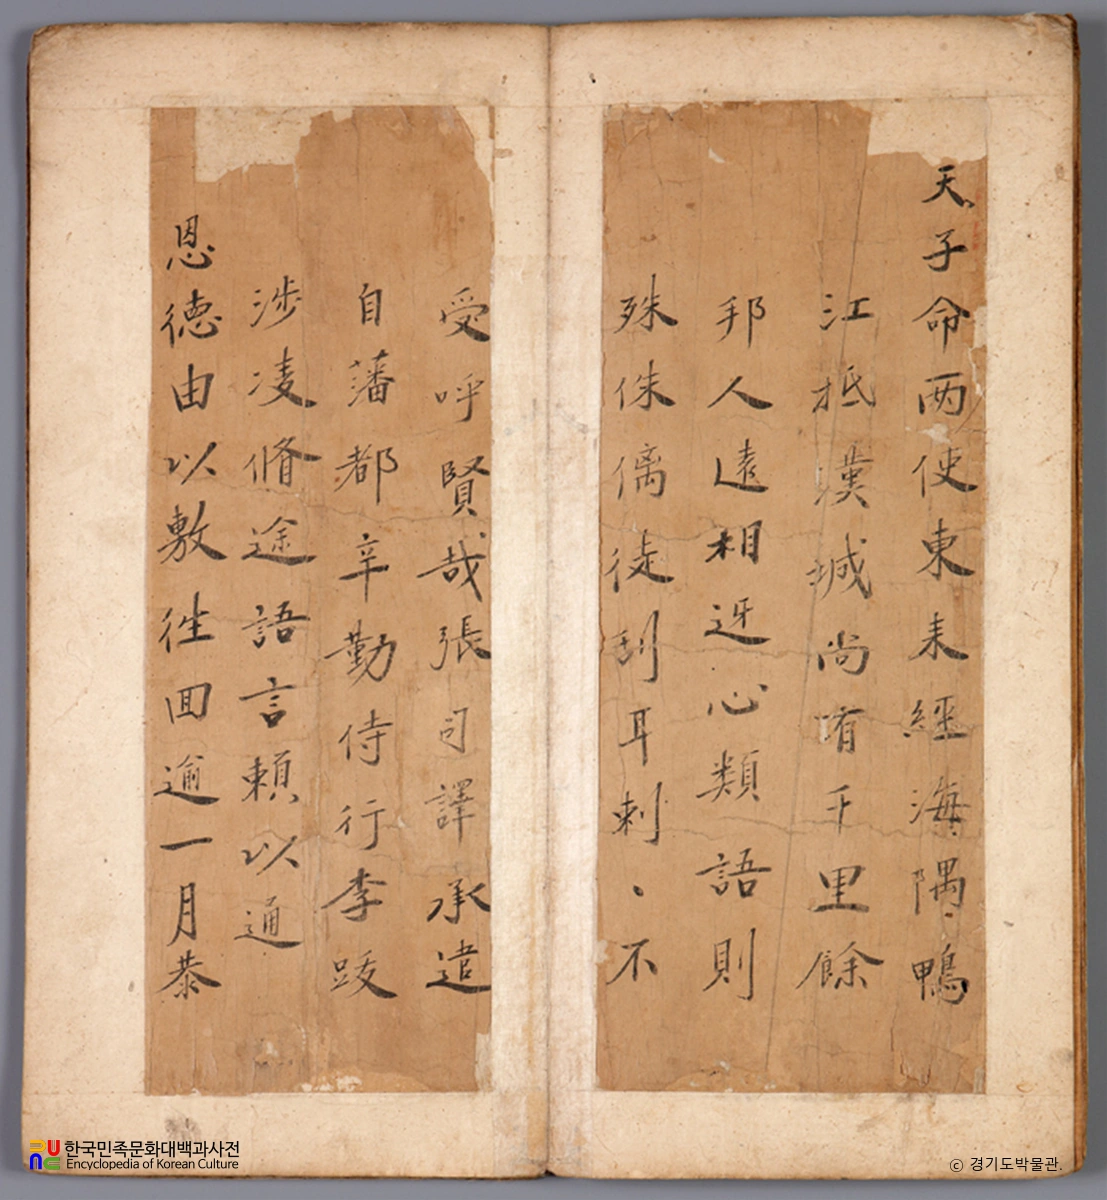 天子命两使東来經海隅鴨
江抵漢城尚有千里餘
邦人遠相迓心類語則
殊侏儷徒刮耳刺、不
受呼賢哉張司譯承遣
自藩都辛勤侍行李跋
渉凌脩途語言頼以通
恩德由以敷徃回逾一月恭
한국민족문화대백과사전
Encyclopedia of Korean Culture
ⓒ 경기도박물관.